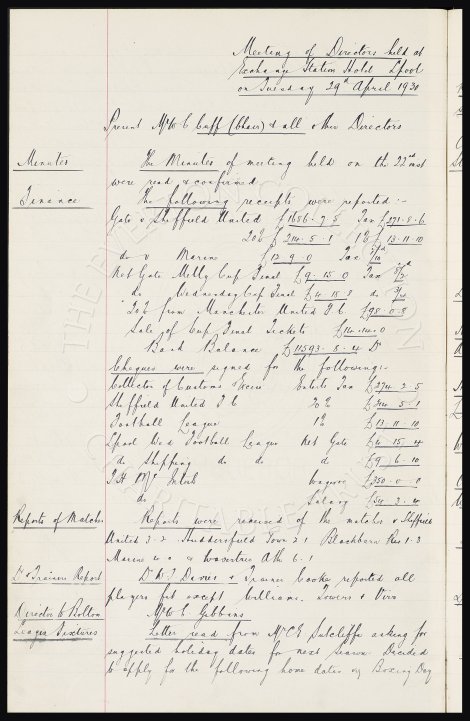 Meeting of Directors held at
Exchange Station Hotel Lpool
on Tuesday 29th April 1930
Present Mr W C Cuff (Chair) & all other Directors
Minutes
The Minutes of meeting held on the 22nd inst
were read & confirmed
Finance
The following receipts were reported :-
Gate v Sheffield United £1656 . 7 . 5 Tax £271 . 8 . 6
20% £ 214 . 5 . 1 1% £ 13 . 11 . 10
do v Marine £12 . 9 . 0 Tax
Net Gate Cup Final £9 . 15 . 0 Tax
do Wednesday Cup Final do
20% from Manchester United F C £98 . 0 . 8
Sale of Cup Final Tickets £14 . 14 . 0
Bank Balance £11593 . 8 . 4 Dr
Cheques were signed for the following :-
Collector of Customs & Excise Tax £274 . 2 . 5
Sheffield United F C 20% £214 . 5 . 1
Football League 1% £13 . 11 . 10
Lpool Wed Football League Net Gate £4 . 15 . 4
do Shipping do do do £9 . 6 . 10
Wages £350 . 0 . 0
do Salary
Reports of Matches
Reports were received of the matches v Sheffield
United 3-2 Huddersfield Town 2-1 Blackburn Res 1-3
Marine v Wavertree Ath 6-1
Dr & Trainers Report
Dr W J Davies & Trainer Cooke reported all
players fit except Williams, Towers & Viro
Director to Bolton
Mr W E Gibbins
League Fixtures
Letter read from Mr C E Sutcliffe asking for
suggested holiday dates for next season. Decided
to apply for the following home dates viz Boxing Day